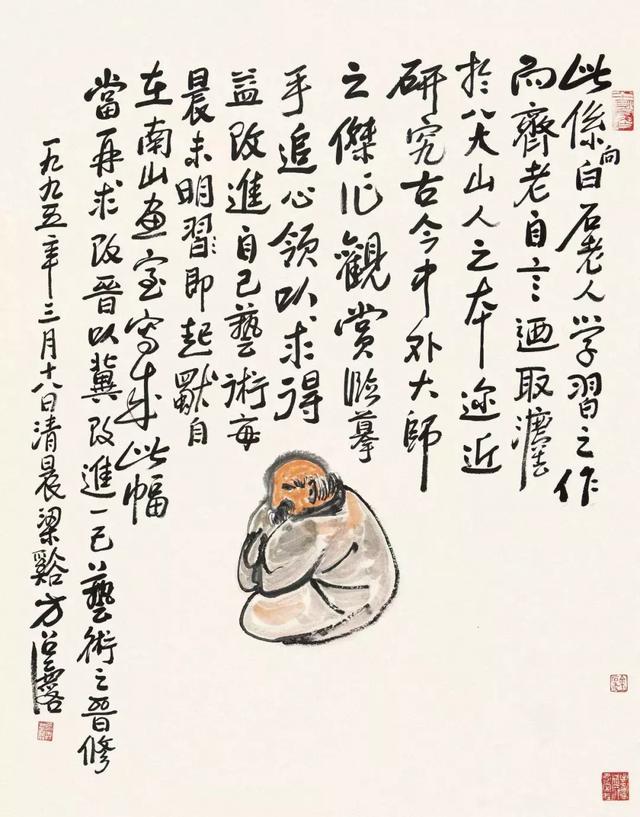 此係向白石老人学習之作
而齊老自言迺取灋
於八大山人之本迩近
研究古今中外大師
之傑作觀賞臨摹
手追心領以求得
益改進自己藝術每
晨未明即起自
在南山畫室寫成此幅
當再求改晉以冀改進一己藝術之晉修
一九九五年三月十八日清晨梁谿方召麐